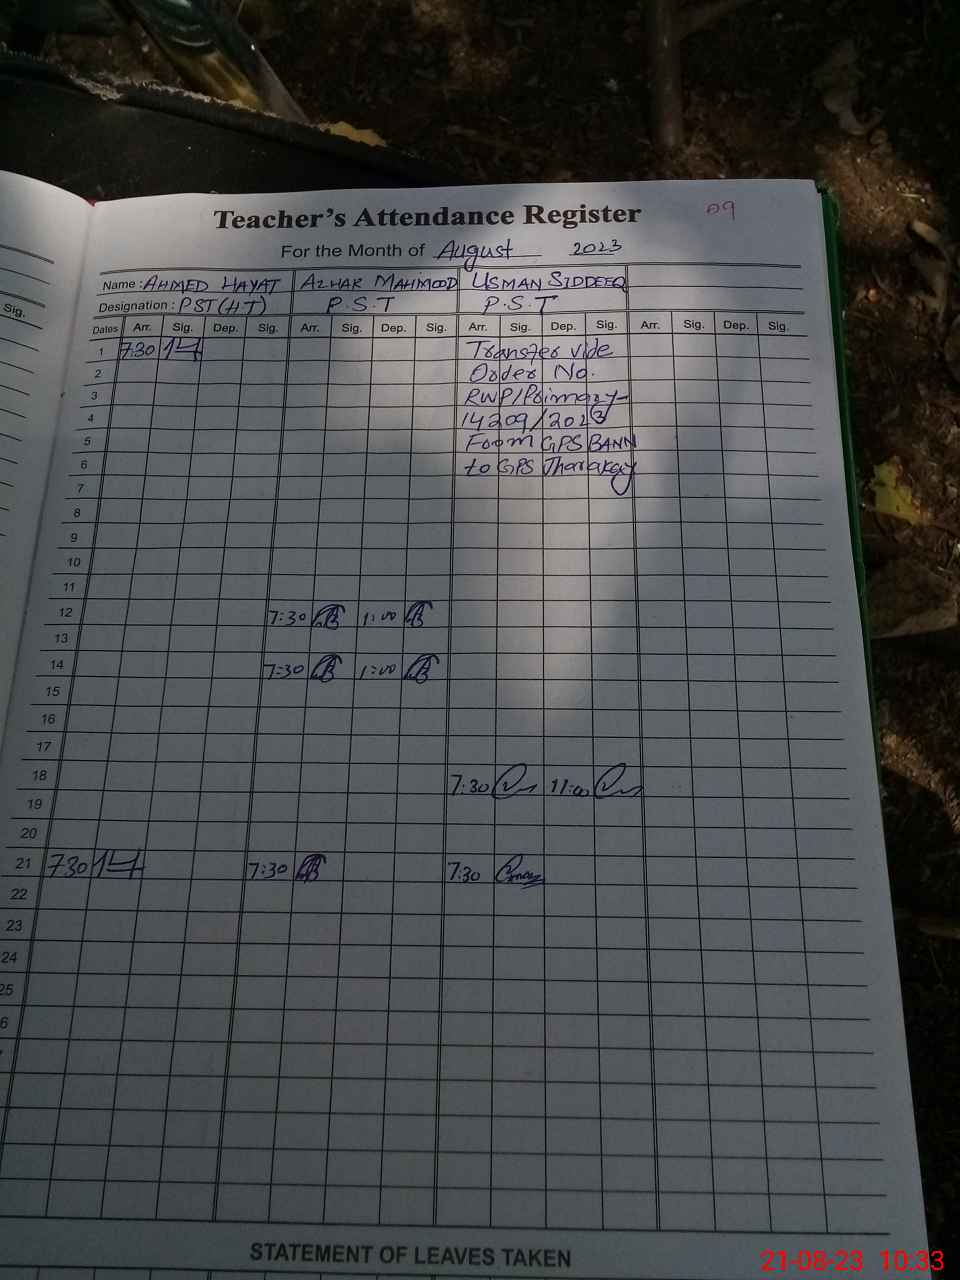 Teacher's Attendance Register
29
For the Month of August 2023
Name : AHMED HAYAT AZHAR MAHMOOD USMAN SIDDEEQ
Designation : PST (HT) P.S.T P.S.T
Sig.
Dates Arr. Sig. Dep. Sig. Arr. Sig. Dep. Sig. Arr. Sig. Dep. Sig. Arr. Sig. Dep. Sig.
1 7:30 Transfer vide
2 Order No.
3 RWP/Primary
4 14209/2023
5 From GPS BANN
6 to GPS
7
8
9
10
11
12 7:30 1:00
13
14 7:30 1:00
15
16
17
18 7:30 11:00
19
20
21 730 7:30 7:30
22
23
24
25
6
STATEMENT OF LEAVES TAKEN
21-08-23 10:33